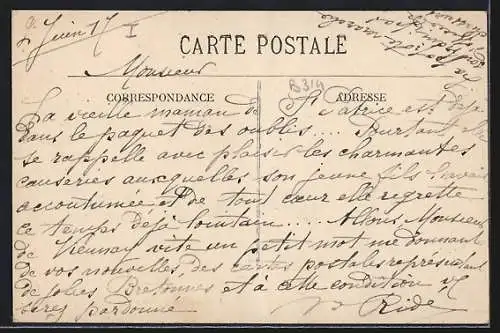 2 Juin 17 I
CARTE POSTALE
Monsieur
B314
CORRESPONDANCE
ADRESSE
La vieille maman de Fabrice est déjà
dans le paquet des oubliés.... Pourtant elle
se rappelle avec plaisir les charmantes
causeries auxquelles son jeune fils l'avait
accoutumée et de tout cœur elle regrette
ce temps déjà lointain.... Allons Monsieur
de vite un petit mot me donnant
de vos nouvelles, des cartes postales représentant
de jolies Bretonnes et à cette condition v/
serez pardonné